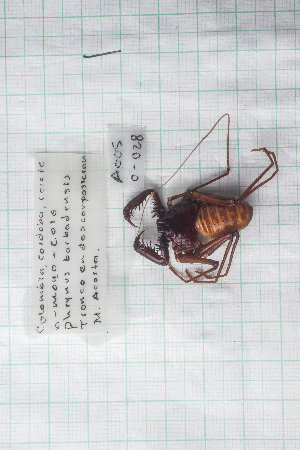 Colombia, Cordoba, Cerete
5-mayo-2016
Phrynus barbadensis
Tronco en descomposicion
M. Acosta
A005
0-028